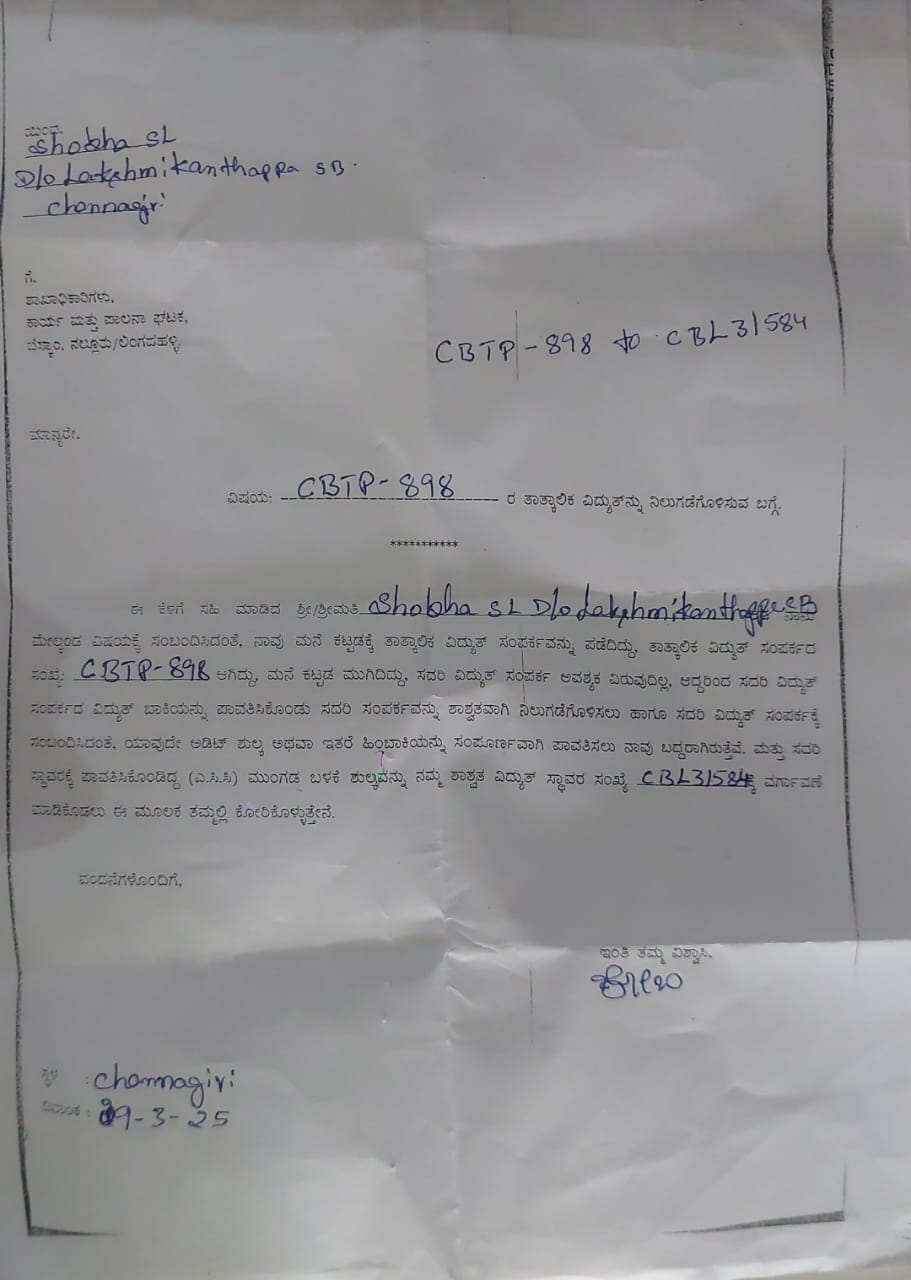 ಯಿಂದ,
Shobha SL
D/o Lakshmikanthappa SB.
Channagiri
ಗೆ,
ಶಾಖಾಧಿಕಾರಿಗಳು,
ಕಾರ್ಯ ಮತ್ತು ಪಾಲನಾ ಘಟಕ,
ಬೆಸ್ಕಾಂ. ನಲ್ಲೂರು/ಲಿಂಗದಹಳ್ಳಿ.
CBTP-898 to CBL31584
ಮಾನ್ಯರೇ.
ವಿಷಯ: CBTP-898 ರ ತಾತ್ಕಾಲಿಕ ವಿದ್ಯುತ್‌ನ್ನು ನಿಲುಗಡೆಗೊಳಿಸುವ ಬಗ್ಗೆ.
***********
ಈ ಕೆಳಗೆ ಸಹಿ ಮಾಡಿದ ಶ್ರೀ/ಶ್ರೀಮತಿ Shobha SL D/o Lakshmikanthappa SB ನಾನು
ಮೇಲ್ಕಂಡ ವಿಷಯಕ್ಕೆ ಸಂಬಂದಿಸಿದಂತೆ, ನಾವು ಮನೆ ಕಟ್ಟಡಕ್ಕೆ ತಾತ್ಕಾಲಿಕ ವಿದ್ಯುತ್ ಸಂಪರ್ಕವನ್ನು ಪಡೆದಿದ್ದು, ತಾತ್ಕಾಲಿಕ ವಿದ್ಯುತ್ ಸಂಪರ್ಕದ
ಸಂಖ್ಯೆ: CBTP-898 ಆಗಿದ್ದು, ಮನೆ ಕಟ್ಟಡ ಮುಗಿದಿದ್ದು, ಸದರಿ ವಿದ್ಯುತ್ ಸಂಪರ್ಕ ಅವಶ್ಯಕ ವಿರುವುದಿಲ್ಲ, ಆದ್ದರಿಂದ ಸದರಿ ವಿದ್ಯುತ್
ಸಂಪರ್ಕದ ವಿದ್ಯುತ್ ಬಾಕಿಯನ್ನು ಪಾವತಿಸಿಕೊಂಡು ಸದರಿ ಸಂಪರ್ಕವನ್ನು ಶಾಶ್ವತವಾಗಿ ನಿಲುಗಡೆಗೊಳಿಸಲು ಹಾಗೂ ಸದರಿ ವಿದ್ಯುತ್ ಸಂಪರ್ಕಕ್ಕೆ
ಸಂಬಂದಿಸಿದಂತೆ, ಯಾವುದೇ ಅಡಿಟ್ ಶುಲ್ಕ ಅಥವಾ ಇತರೆ ಹಿಂಬಾಕಿಯನ್ನು ಸಂಪೂರ್ಣವಾಗಿ ಪಾವತಿಸಲು ನಾವು ಬದ್ದರಾಗಿರುತ್ತೆವೆ. ಮತ್ತು ಸದರಿ
ಸ್ಥಾವರಕ್ಕೆ ಪಾವತಿಸಿಕೊಂಡಿದ್ದ (ಎ.ಸಿ.ಸಿ) ಮುಂಗಡ ಬಳಕೆ ಶುಲ್ಕವನ್ನು ನಮ್ಮ ಶಾಶ್ವತ ವಿದ್ಯುತ್ ಸ್ಥಾವರ ಸಂಖ್ಯೆ CBL31584ಕ್ಕೆ ವರ್ಗಾವಣೆ
ಮಾಡಿಕೊಡಲು ಈ ಮೂಲಕ ತಮ್ಮಲ್ಲಿ ಕೋರಿಕೊಳ್ಳುತ್ತೇನೆ.
ವಂದನೆಗಳೊಂದಿಗೆ,
ಇಂತಿ ತಮ್ಮ ವಿಶ್ವಾಸಿ,
ಸ್ಥಳ : Channagiri
ದಿನಾಂಕ : 29-3-25